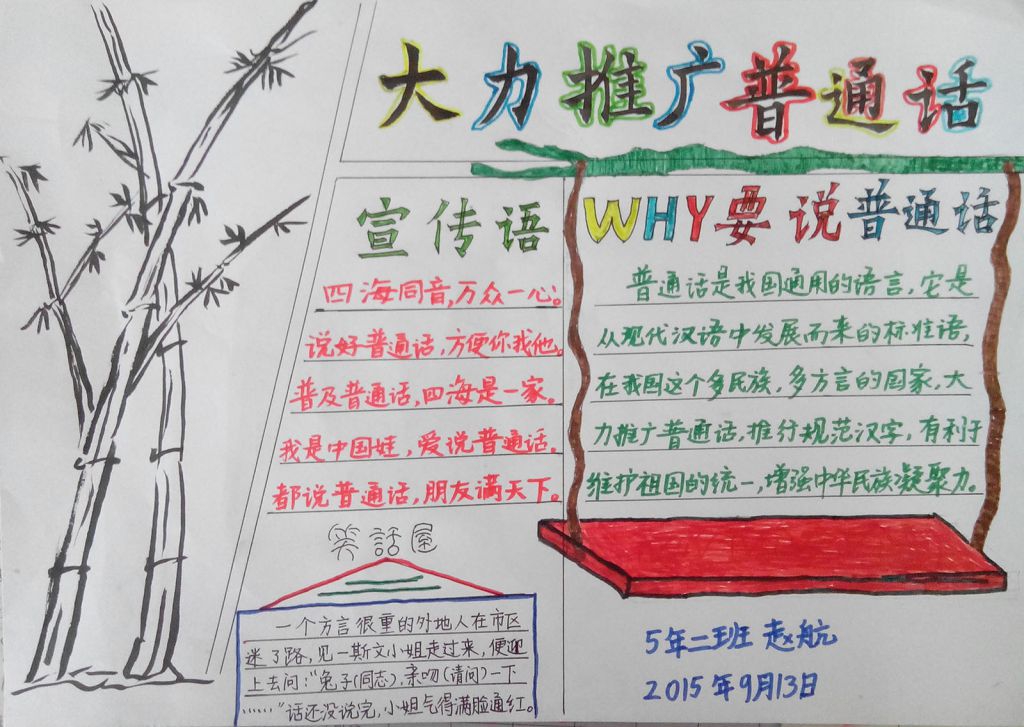 大力推广普通话
宣传语
四海同音,万众一心。
说好普通话,方便你我他。
普及普通话,四海是一家。
我是中国娃,爱说普通话。
都说普通话,朋友满天下。
WHY要说普通话
普通话是我国通用的语言,它是
从现代汉语中发展而来的标准语,
在我国这个多民族,多方言的国家,大
力推广普通话,推行规范汉字,有利于
维护祖国的统一,增强中华民族凝聚力。
笑話屋
一个方言很重的外地人在市区
迷了路,见一斯文小姐走过来,便迎
上去问:“兔子(同志),亲吻(请问)一下
……”话还没说完,小姐气得满脸通红。
5年二班 赵航
2015年9月13日